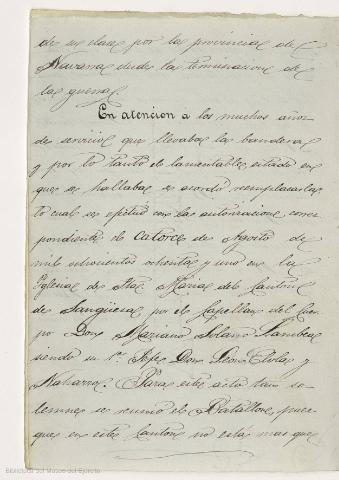 de su clase por la provincia de
Navarra desde la terminacion de
la guerra.
En atencion a los muchos años
de servicio que llevaba la bandera
y por lo tanto de lamentable estado en
que se hallaba se acordó reemplazarla
lo cual se efectuó con la autorizacion corres
pondiente el catorce de Agosto de
mil ochocientos ochenta y uno en la
Yglesia de Sta. Maria del Canton
de Sangüesa por el Capellan del Cuer
po Don Mariano Solano
siendo su 1er Jefe Don Leon Elola y
Naharro. Para este acto tan so
lemne se reunió el Batallon, pues
que en este Canton no está mas que
Biblioteca del Museo del Ejército